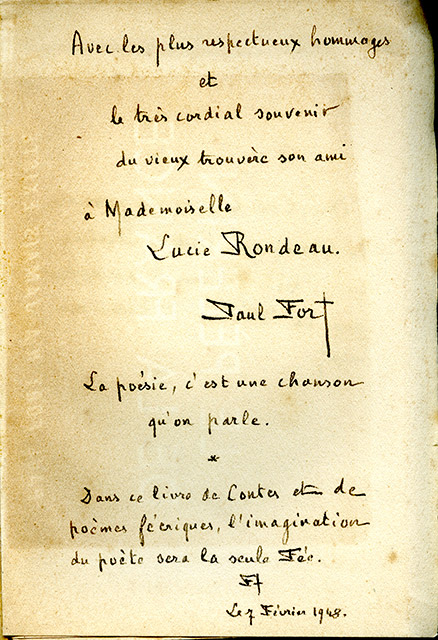 Avec les plus respectueux hommages
et
le très cordial souvenir
du vieux trouvère son ami
à Mademoiselle
Lucie Rondeau.
Paul Fort
La poésie, c'est une chanson
qu'on parle.
*
Dans ce livre de Contes et de
poèmes féeriques, l'imagination
du poète sera la seule Fée.
Ft
Le 7 Février 1948.